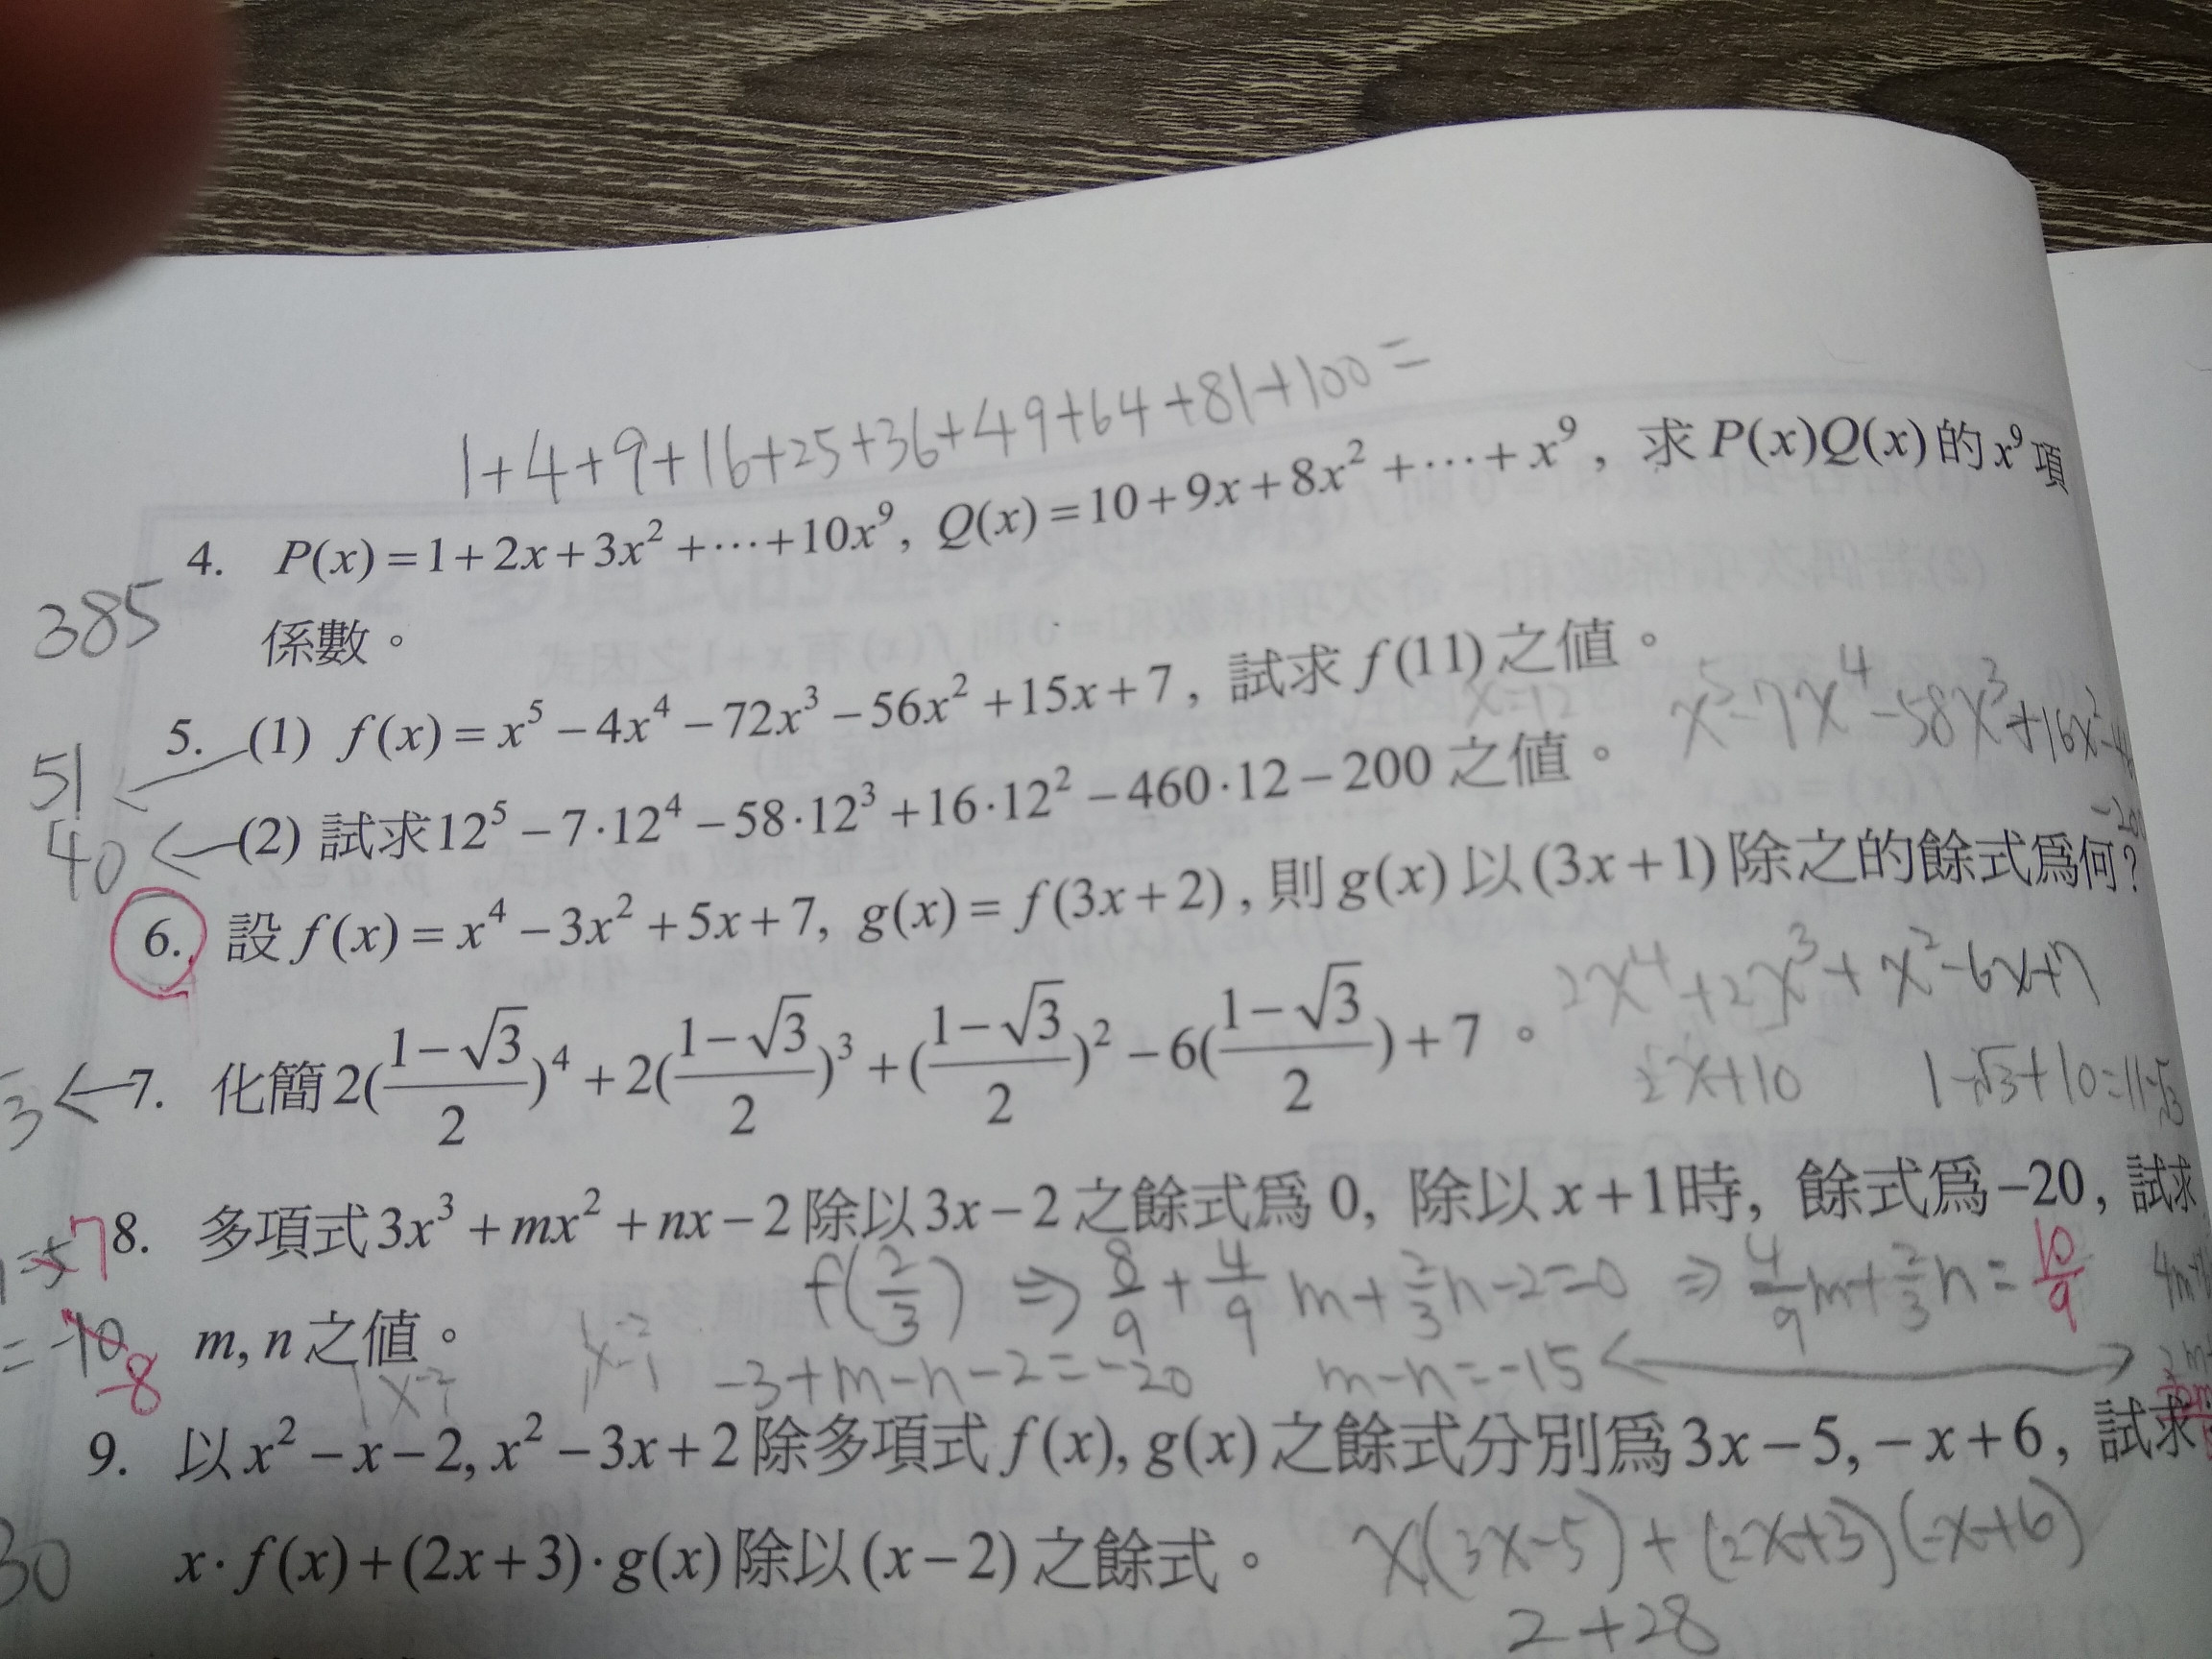 1+4+9+16+25+36+49+64+81+100=
4. P(x)=1+2x+3x²+⋯+10x⁹, Q(x)=10+9x+8x²+⋯+x⁹, 求P(x)Q(x)的x⁹項
385
係數。
5. (1) f(x)=x⁵−4x⁴−72x³−56x²+15x+7, 試求f(11)之值。
51
x=12
x⁵−7x⁴−58x³+16x²
(2) 試求12⁵−7·12⁴−58·12³+16·12²−460·12−200之值。
40
6. 設f(x)=x⁴−3x²+5x+7, g(x)=f(3x+2), 則g(x)以(3x+1)除之的餘式爲何?
2x⁴+2x³+x²−6x+7
7. 化簡2((1−√3)/2)⁴+2((1−√3)/2)³+((1−√3)/2)²−6((1−√3)/2)+7。
2x+10 1−√3+10=11−√3
8. 多項式3x³+mx²+nx−2除以3x−2之餘式爲0, 除以x+1時, 餘式爲−20, 試求
7
f(2/3) ⇒ 8/9+4/9m+2/3n−2=0 ⇒ 4/9m+2/3n=10/9
m, n之值。
=−10
−8
−3+m−n−2=−20 m−n=−15
9. 以x²−x−2, x²−3x+2除多項式f(x), g(x)之餘式分別爲3x−5, −x+6, 試求
x·f(x)+(2x+3)·g(x)除以(x−2)之餘式。
30
x(3x−5)+(2x+3)(−x+6)
2+28